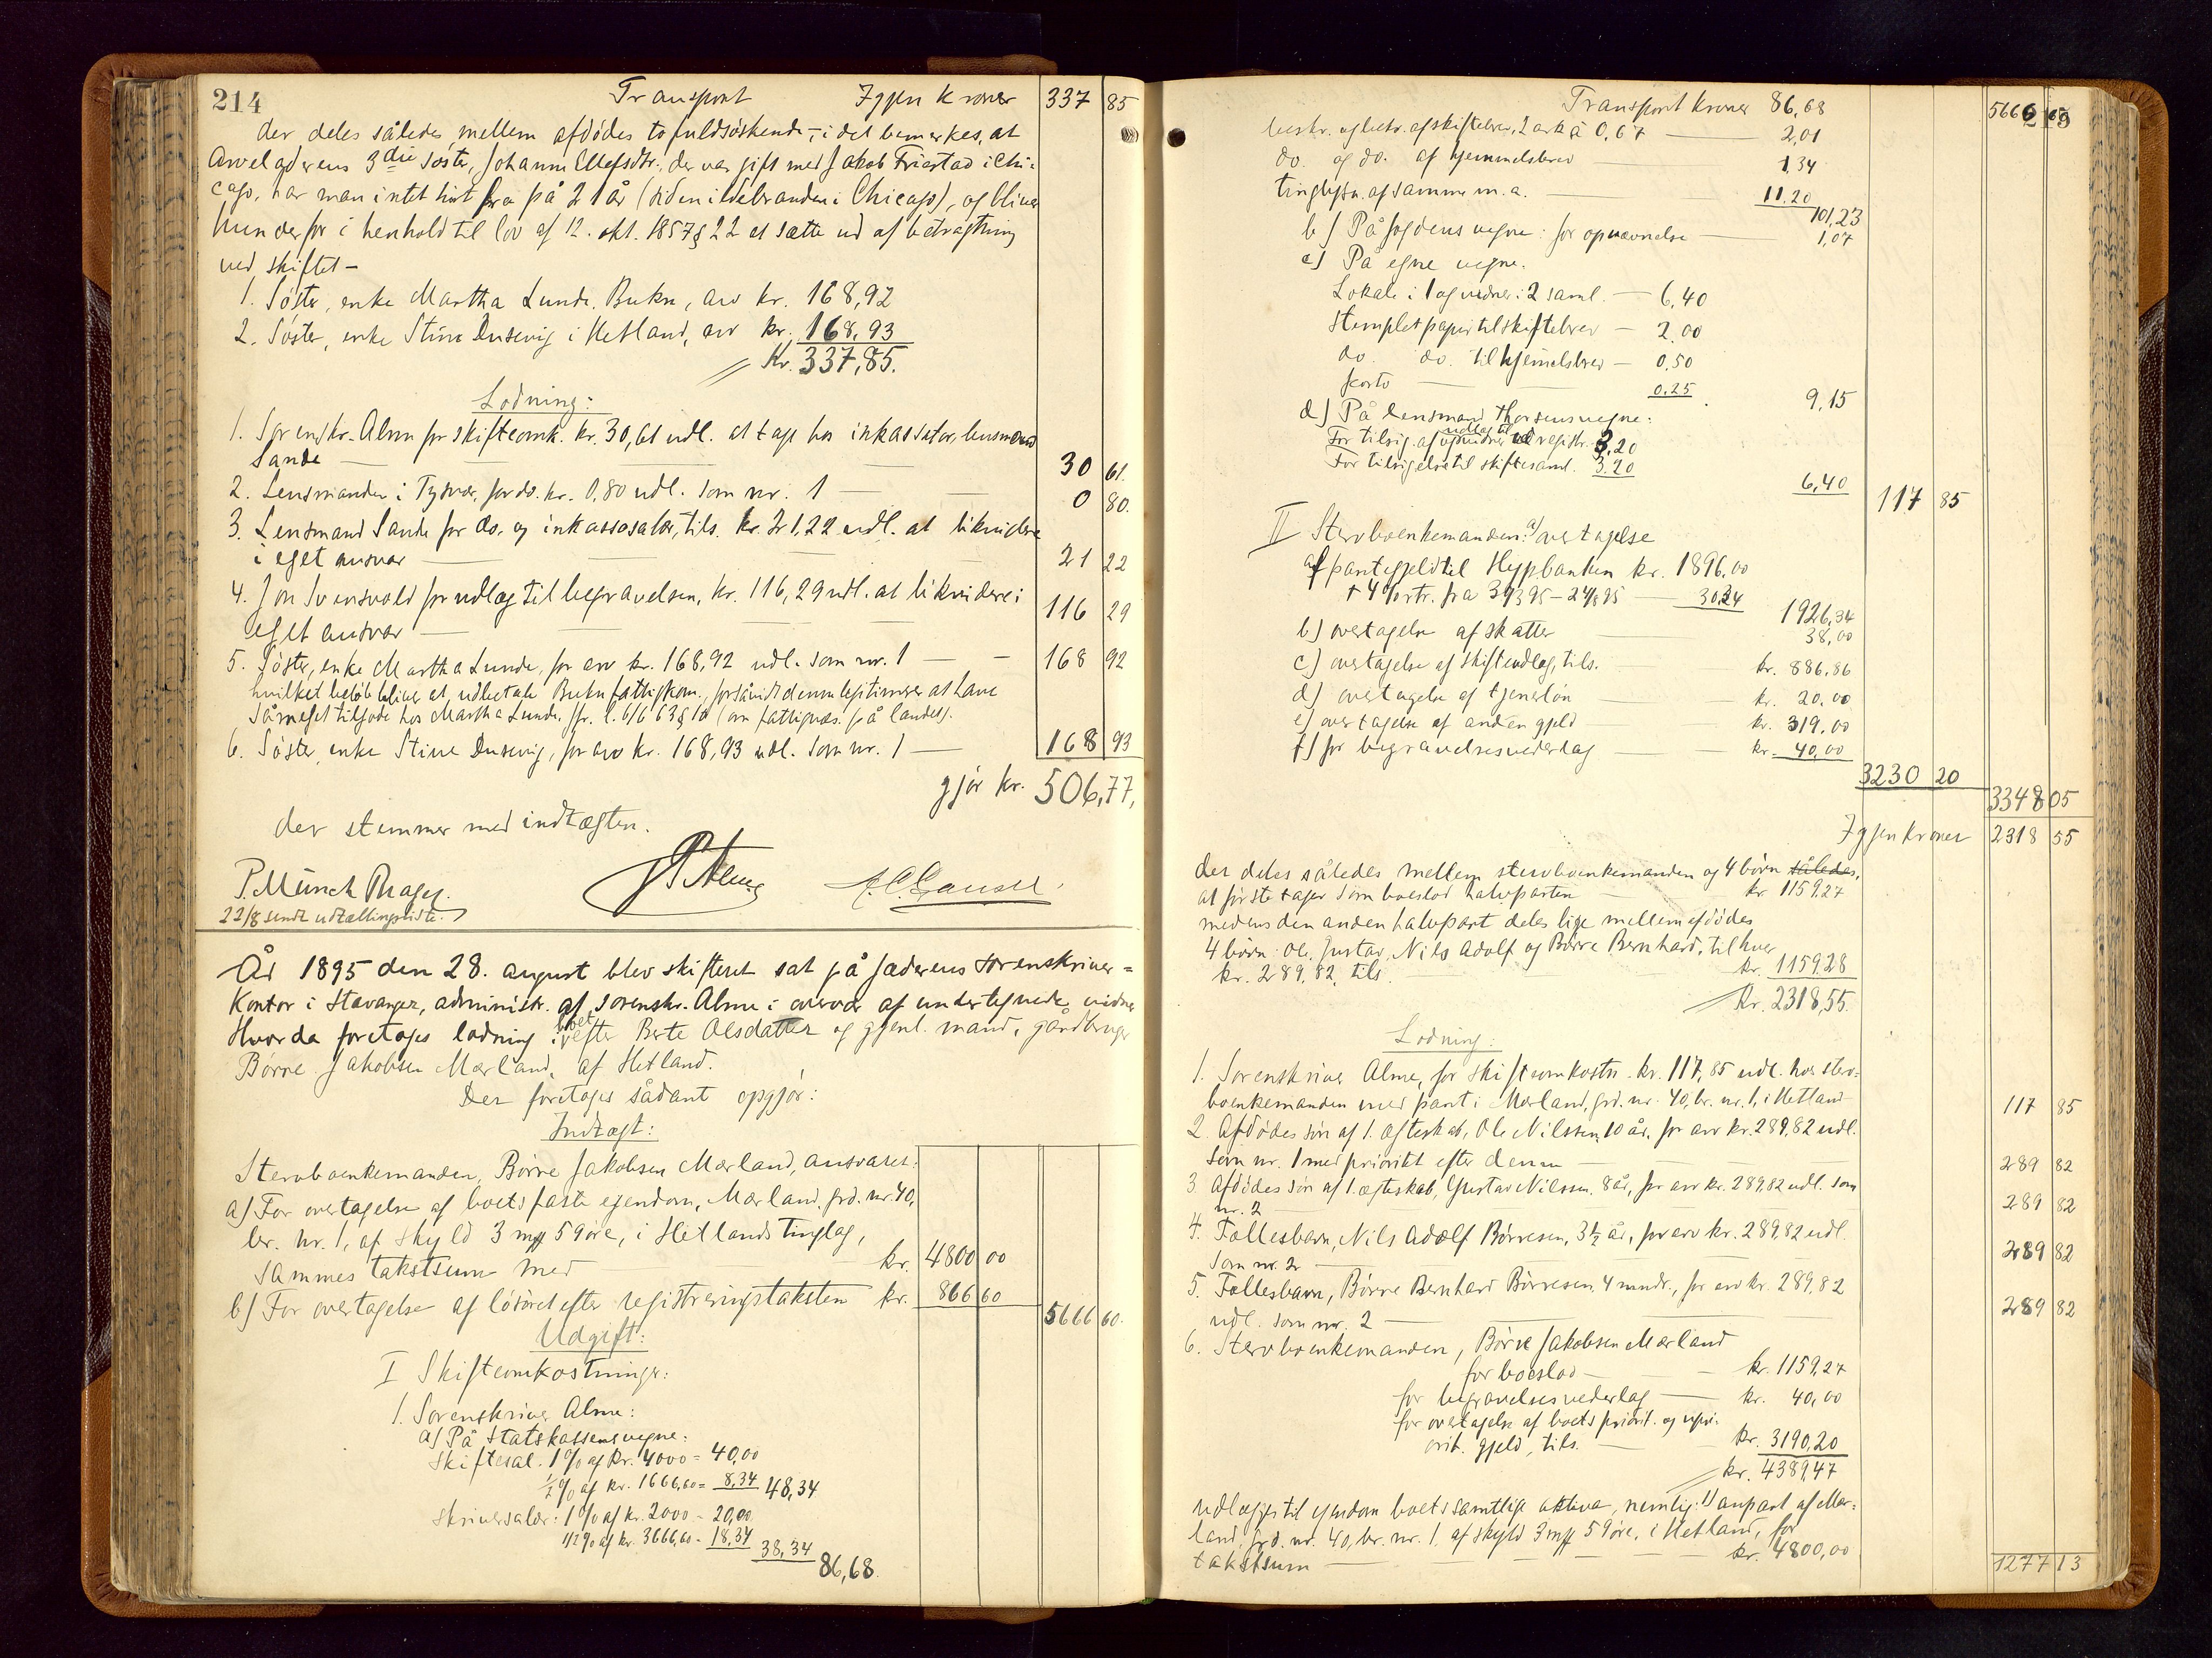 214 Transport Igjen kroner 337 85
der deles således mellem afdødes to fuldsøskende, – idet bemerkes, at
Arveladerens 3die søster, Johanne Olefsdtr., der var gift med Jakob Friestad i Chi-
cago, har man intet hørt fra på 21 år (siden ildebranden i Chicago), og bliver
hun derfor i henhold til lov af 12. okt. 1857 § 22 at sætte ud af betragtning
ved skiftet –
1. Søster, enke Martha Lunde, Bukn, arv kr. 168,92
2. Søster, enke Stine Dusevig i Hetland, arv kr. 168,93
Kr. 337,85.
Lodning:
1. Sorenskr. Alme for skifteomk. kr. 30,61 udl. at tage hos inkassator, lensmand
Sande — 30 61.
2. Lensmanden i Tysvær, for do. kr. 0,80 udl. som nr. 1 — 0 80.
3. Lensmand Sande for do. og inkassosalær, tils. kr. 21,22 udl. at likvidere
i eget ansvar — 21 22
4. Jon Svensvold for udlæg til begravelsen, kr. 116,29 udl. at likvidere i
eget ansvar — 116 29
5. Søster, enke Martha Lunde, for arv kr. 168,92 udl. som nr. 1 — 168 92
hvilket beløb bliver at udbetale Bukn fattigkom., forsåvidt denne legitimerer at have
såmeget tilgode hos Martha Lunde, jfr. l. 6/6 63 § 10 (om fattigvæs. på landet).
6. Søster, enke Stine Dusevig, for arv kr. 168,93 udl. som nr. 1 — 168 93
gjør kr. 506,77,
der stemmer med indtægten.
P. Münch Prager.
22/8 sendt udtællingsliste.
År 1895 den 28. august blev skifteret sat på Jæderens sorenskriver=
kontor i Stavanger, administr. af sorenskr. Alme i overvær af undertegnede vidner
Hvorda foretoges lodning i boet efter Berte Olsdatter og gjenl. mand, gårdbruger
Børre Jakobsen Mærland, af Hetland.
Der foretoges sådant opgjør:
Indtægt:
Stervboenkemanden, Børre Jakobsen Mærland, ansvarer:
a) For overtagelse af boets faste ejendom, Mærland, grd. nr. 40,
br. nr. 1, af skyld 3 mrk 59 øre, i Hetlands tinglag,
sammes takstsum med kr. 4800 00
b) For overtagelse af løsøret efter registreringstaksten kr. 866 60
5666 60.
Udgift:
I Skifteomkostninger:
1. Sorenskriver Alme:
a) På Statskassens vegne:
Skiftesal. 1 % af kr. 4000 = 40,00
½ % af kr. 1666,60 = 8,34 48,34
Skriversalær: 1 % af kr. 2000 = 20,00
1/2 % af kr. 3666,60 = 18,34
38,34 86,68.
Transport kroner 86,68 5666 60 215
beskr. og bekr. af skiftebrev, 2 ark à 0,67 — 2,01
do. og do. af hjemmelsbrev 1,34
tinglysn. af samme m. a. — 11.20
101,23
b) På fogdens vegne: for opnævnelse — 1,07
c) På egne vegne.
Lokale i 1 og vidner i 2 saml. — 6,40
Stemplet papir til skiftebrev — 2,00
do. do. til hjemmelsbrev — 0,50
porto — 0.25 9,15
d) På lensmand Thorsens vegne:
For tilsig. af og udlæg til vidner ved registr. 3,20
For tilsigelse til skiftesaml. 3.20
6,40 117 85
II Stervboenkemanden: a) overtagelse
af pantegjeld til Hypbanken kr. 1896,00
+ 4 % rtr. fra 30/3 95 – 24/8 95 — 30,34 1926,34
b) overtagelse af skatter — 38,00
c) overtagelse af skifteudlæg, tils. — kr. 886,86
d) overtagelse af tjenerløn — kr. 20,00
e) overtagelse af anden gjeld — kr. 319,00
f) for begravelsesvederlag — kr. 40,00
3230 20
3348 05
Igjen kroner 2318 55
der deles således mellem stervboenkemanden og 4 børn således,
at første tager som boeslod halvparten — kr. 1159,27
medens den anden halvpart deles lige mellem afdødes
4 børn: Ole, Gustav, Nils Adolf og Børre Bernhard, til hver
kr. 289,82, tils. kr. 1159,28
Kr. 2318,55.
Lodning:
1. Sorenskriver Alme, for skifteomkostn. kr. 117,85 udl. hos sterv-
boenkemanden med pant i Mærland, grd. nr. 40, br. nr. 1, i Hetland 117 85
2. Afdødes søn af 1. ægteskab, Ole Nilssen, 10 år, for arv kr. 289,82 udl.
som nr. 1 med prioritet efter denne — 289 82
3. Afdødes søn af 1. ægteskab, Gustav Nilssen, 8 år, for arv kr. 289,82 udl. som
nr. 2 — 289 82
4. Fællesbarn, Nils Adolf Børresen, 3½ år, for arv kr. 289,82 udl.
som nr. 2 — 289 82
5. Fællesbarn, Børre Bernhard Børresen, 4 mndr., for arv kr. 289,82
udl. som nr. 2 — 289 82
6. Stervboenkemanden, Børre Jakobsen Mærland
for boeslod — kr. 1159,27
for begravelsesvederlag — kr. 40,00
for overtagelse af boets priorit. og upri-
orit. gjeld, tils. — kr. 3190,20
kr. 4389,47
udlægges til ejendom boets samtlige aktiva, nemlig: 1) anpart af Mær-
land, grd. nr. 40, br. nr. 1, af skyld 3 mrk 59 øre, i Hetland, for
takstsum — kr. 4800,00 1277 13